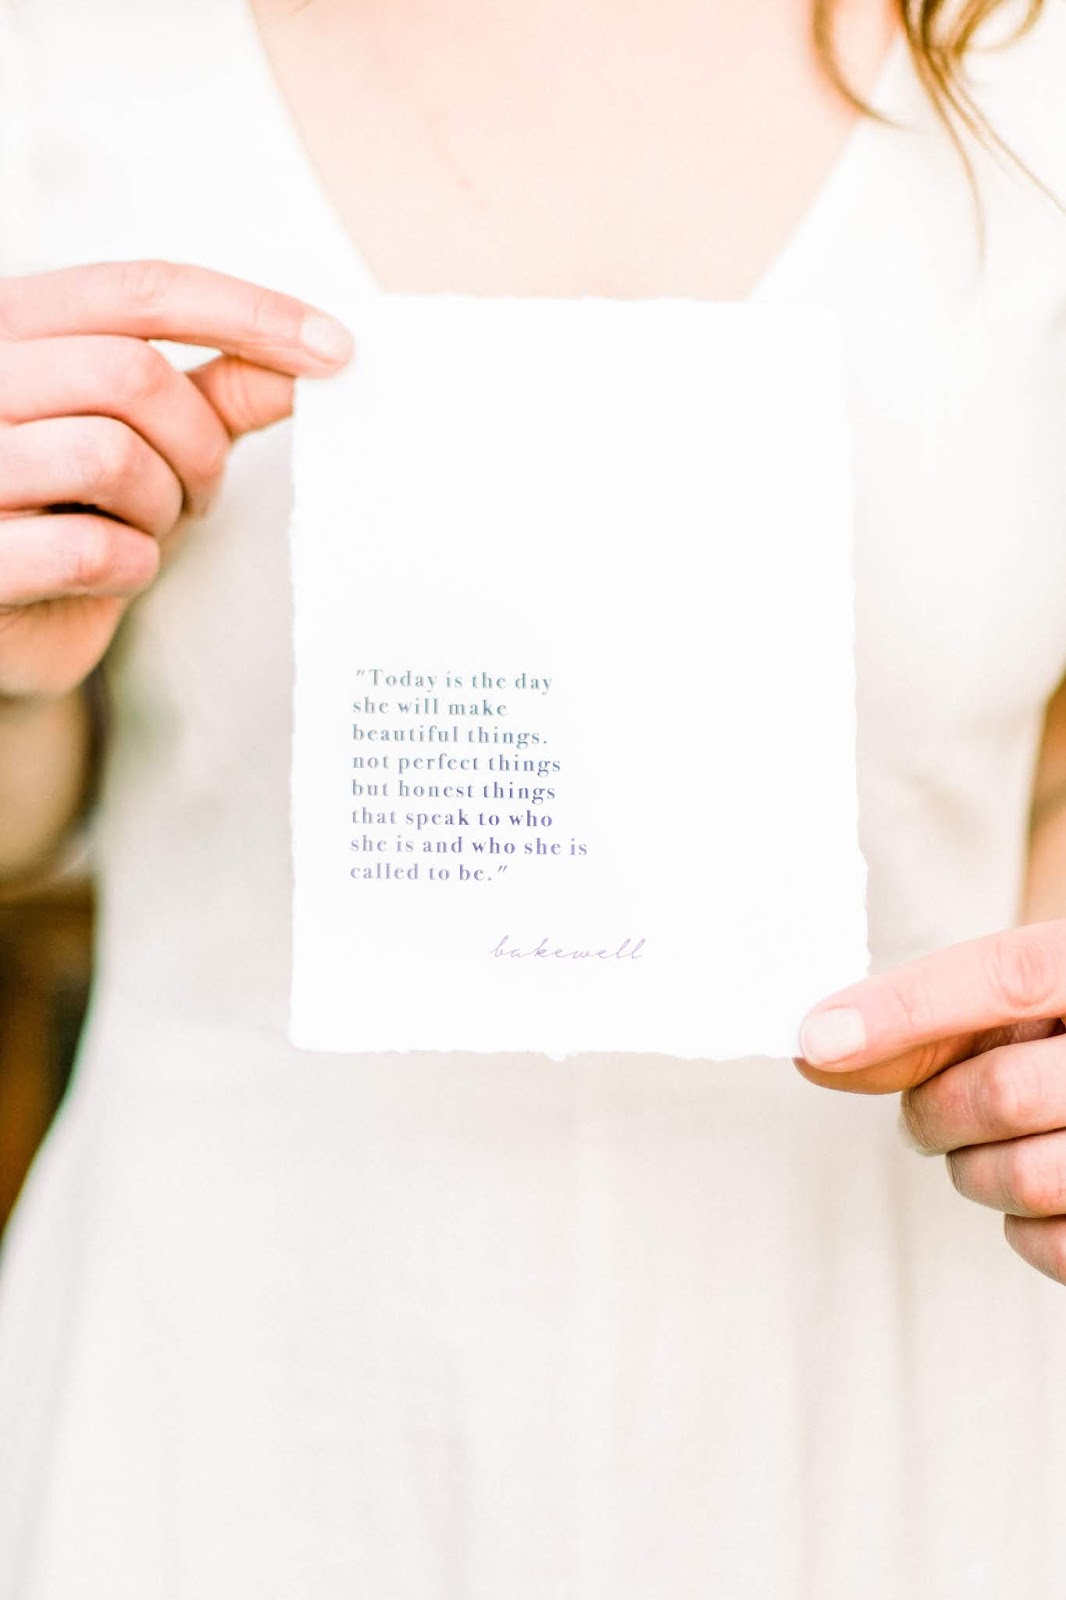 "Today is the day
she will make
beautiful things.
not perfect things
but honest things
that speak to who
she is and who she is
called to be."
bakewell